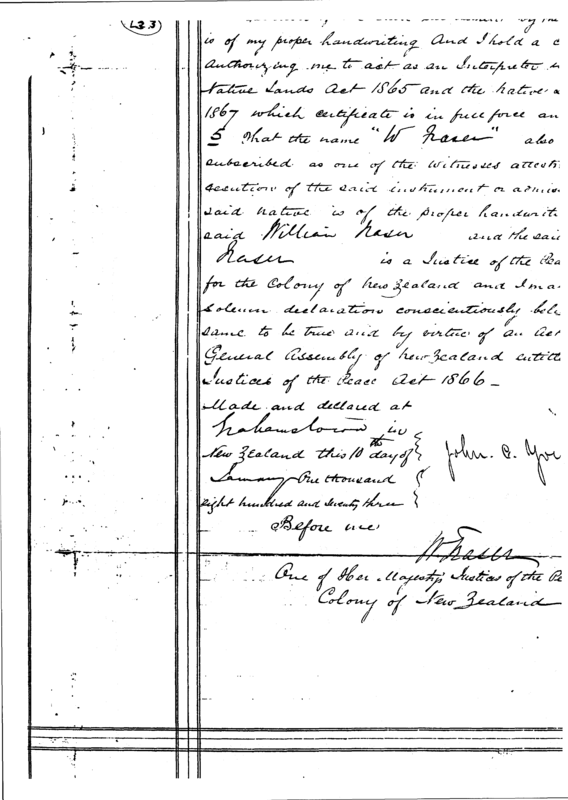 133
by the
is of my proper handwriting And I hold a c
authorizing me to act as an Interpreter
Native Lands Act 1865 and the Native
1867 which certificate is in full force an
5 That the name "W Fraser" also
subscribed as one of the witnesses attesti
execution of the said instrument or
said native is of the proper handwriti
said William Fraser and the said
Fraser is a Justice of the Pea
for the Colony of New Zealand and I ma
solemn declaration conscientiously beli
same to be true and by virtue of an Act
General Assembly of New Zealand entitl
Justices of the Peace Act 1866 —
Made and declared at
Grahamstown in
New Zealand this 10th day of
January One thousand
eight hundred and seventy three
John. C. You
Before me
W Fraser
One of Her Majesty's Justices of the Pe
Colony of New Zealand